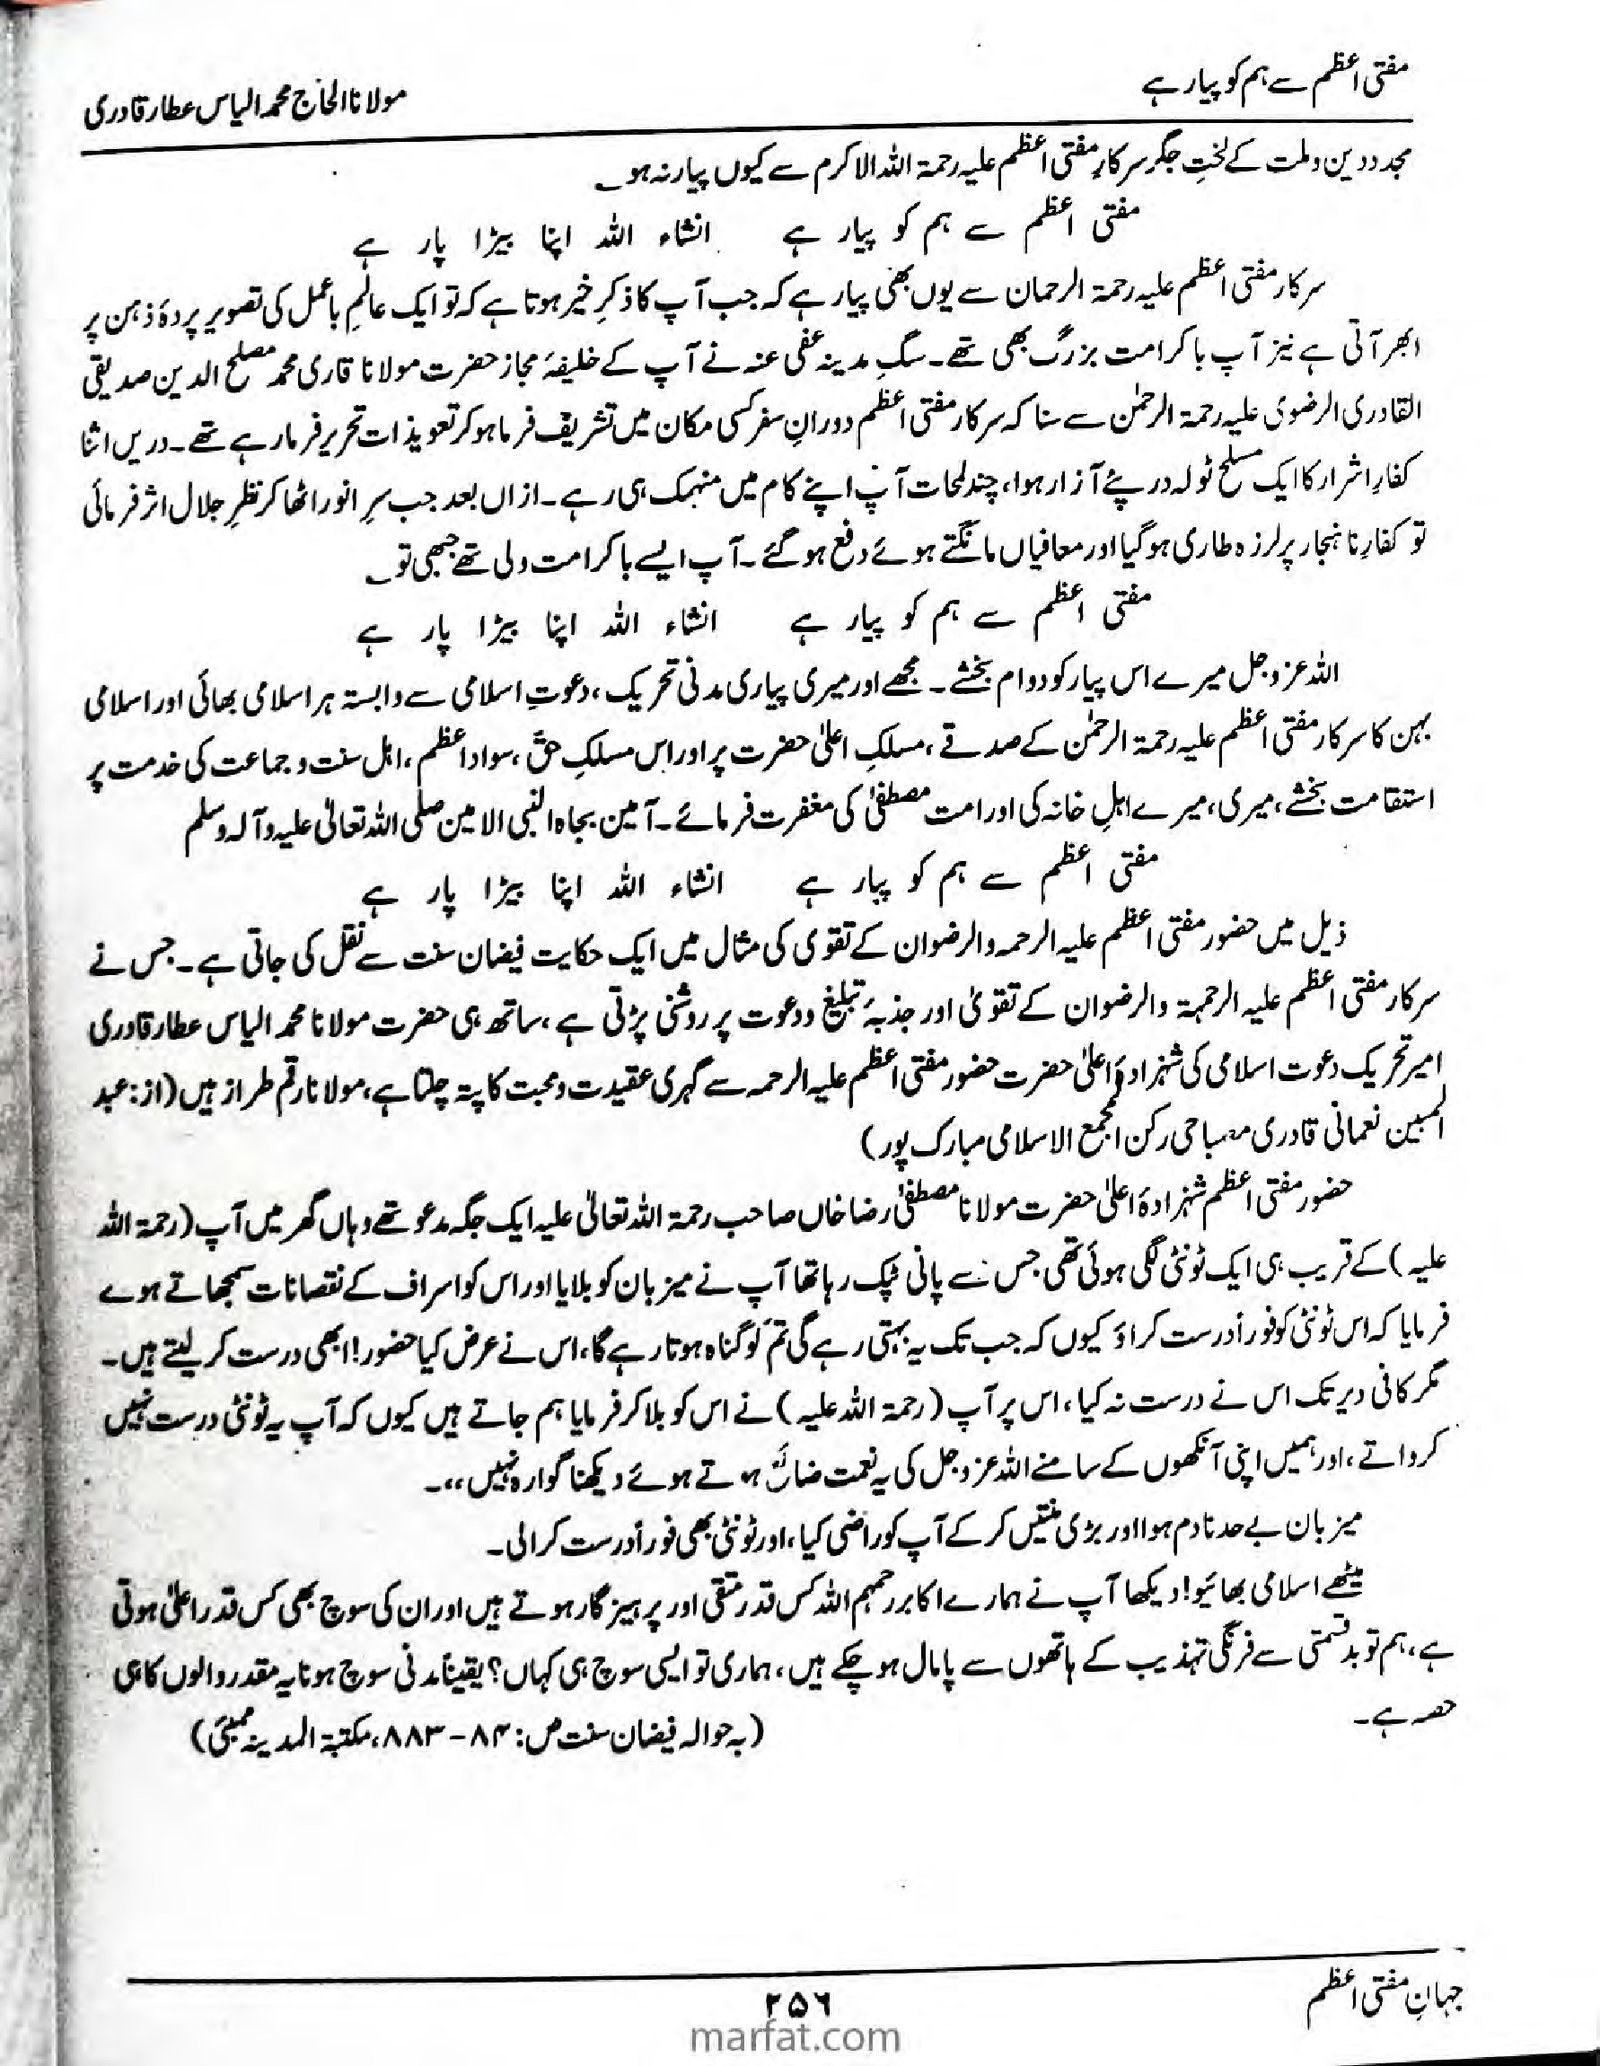 مفتی اعظم سے ہم کو پیار ہے
مولانا الحاج محمد الیاس عطار قادری
مجدد دین و ملت کے لختِ جگر سرکارِ مفتی اعظم علیہ رحمۃ اللہ الاکرم سے کیوں پیار نہ ہو؂
مفتی اعظم سے ہم کو پیار ہے انشاء اللہ اپنا بیڑا پار ہے
سرکار مفتی اعظم علیہ رحمۃ الرحمان سے یوں بھی پیار ہے کہ جب آپ کا ذکرِ خیر ہوتا ہے کہ تو ایک عالمِ باعمل کی تصویر پردۂ ذہن پر
ابھر آتی ہے نیز آپ باکرامت بزرگ بھی تھے۔ سگِ مدینہ عفی عنہ نے آپ کے خلیفۂ مجاز حضرت مولانا قاری محمد مصلح الدین صدیقی
القادری الرضوی علیہ رحمۃ الرحمٰن سے سنا کہ سرکار مفتی اعظم دورانِ سفر کسی مکان میں تشریف فرما ہو کر تعویذات تحریر فرما رہے تھے۔ دریں اثنا
کفارِ اشرار کا ایک مسلح ٹولہ درپئے آزار ہوا، چند لمحات آپ اپنے کام میں منہمک ہی رہے۔ ازاں بعد جب سرِ انور اٹھا کر نظرِ جلال اثر فرمائی
تو کفارِ ناہنجار پر لرزہ طاری ہو گیا اور معافیاں مانگتے ہوئے دفع ہو گئے۔ آپ ایسے باکرامت ولی تھے جبھی تو؂
مفتی اعظم سے ہم کو پیار ہے انشاء اللہ اپنا بیڑا پار ہے
اللہ عزوجل میرے اس پیار کو دوام بخشے۔ مجھے اور میری پیاری مدنی تحریک، دعوتِ اسلامی سے وابستہ ہر اسلامی بھائی اور اسلامی
بہن کا سرکار مفتی اعظم علیہ رحمۃ الرحمٰن کے صدقے، مسلکِ اعلیٰ حضرت پر اور اس مسلکِ حقّ، سواد اعظم، اہل سنت و جماعت کی خدمت پر
استقامت بخشے، میری، میرے اہلِ خانہ کی اور امت مصطفیٰ کی مغفرت فرمائے۔ آمین بجاہ النبی الامین صلی اللہ تعالیٰ علیہ وآلہ وسلم
مفتی اعظم سے ہم کو پیار ہے انشاء اللہ اپنا بیڑا پار ہے
ذیل میں حضور مفتی اعظم علیہ الرحمہ والرضوان کے تقوی کی مثال میں ایک حکایت فیضان سنت سے نقل کی جاتی ہے۔ جس نے
سرکار مفتی اعظم علیہ الرحمۃ والرضوان کے تقویٰ اور جذبۂ تبلیغ و دعوت پر روشنی پڑتی ہے، ساتھ ہی حضرت مولانا محمد الیاس عطار قادری
امیر تحریک دعوت اسلامی کی شہزادۂ اعلیٰ حضرت حضور مفتی اعظم علیہ الرحمہ سے گہری عقیدت و محبت کا پتہ چلتا ہے، مولانا رقم طراز ہیں (از: عبد
المبین نعمانی قادری مصباحی رکن المجمع الاسلامی مبارک پور)
حضور مفتی اعظم شہزادۂ اعلیٰ حضرت مولانا مصطفیٰ رضا خاں صاحب رحمۃ اللہ تعالیٰ علیہ ایک جگہ مدعو تھے وہاں گھر میں آپ (رحمۃ اللہ
علیہ) کے قریب ہی ایک ٹونٹی لگی ہوئی تھی جس سے پانی ٹپک رہا تھا آپ نے میزبان کو بلایا اور اس کو اسراف کے نقصانات سمجھاتے ہوے
فرمایا کہ اس ٹونٹی کو فوراً درست کراؤ کیوں کہ جب تک یہ بہتی رہے گی تم کو گناہ ہوتا رہے گا، اس نے عرض کیا حضور! ابھی درست کر لیتے ہیں۔
مگر کافی دیر تک اس نے درست نہ کیا، اس پر آپ (رحمۃ اللہ علیہ) نے اس کو بلا کر فرمایا ہم جاتے ہیں کیوں کہ آپ یہ ٹونٹی درست نہیں
کرواتے، اور ہمیں اپنی آنکھوں کے سامنے اللہ عزوجل کی یہ نعمت ضائع ہوتے ہوئے دیکھنا گوارہ نہیں،،۔
میزبان بے حد نادم ہوا اور بڑی منتیں کر کے آپ کو راضی کیا، اور ٹونٹی بھی فوراً درست کرالی۔
میٹھے اسلامی بھائیو! دیکھا آپ نے ہمارے اکابر رحمہم اللہ کس قدر متقی اور پرہیزگار ہوتے ہیں اور ان کی سوچ بھی کس قدر اعلیٰ ہوتی
ہے، ہم تو بدقسمتی سے فرنگی تہذیب کے ہاتھوں سے پامال ہو چکے ہیں، ہماری تو ایسی سوچ ہی کہاں؟ یقیناً مدنی سوچ ہونا یہ مقدر والوں کا ہی
حصہ ہے۔
(بہ حوالہ فیضان سنت ص: ۸۴-۸۸۳، مکتبۃ المدینہ ممبئی)
جہانِ مفتی اعظم
۲۵۶
marfat.com